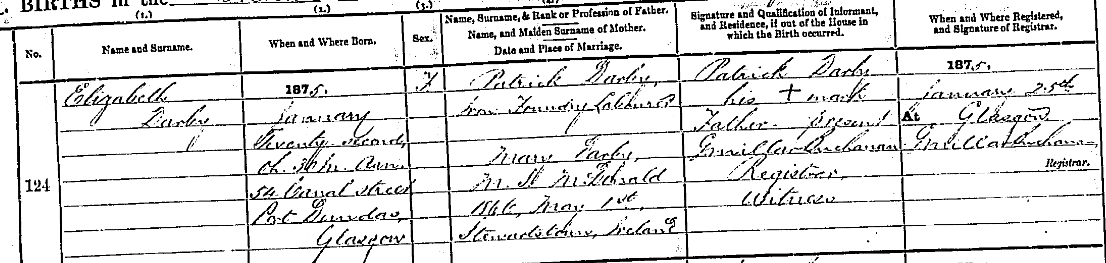 BIRTHS in the
(1.) (2.) (3.)
No.
Name and Surname.
When and Where Born.
Sex.
Name, Surname, & Rank or Profession of Father.
Name, and Maiden Surname of Mother.
Date and Place of Marriage.
Signature and Qualification of Informant,
and Residence, if out of the House in
which the Birth occurred.
When and Where Registered,
and Signature of Registrar.
124
Elizabeth
Darby
1875.
January
Twenty second,
0h. 30m. A.M.
54 Canal Street
Port Dundas,
Glasgow
F
Patrick Darby,
Iron Foundry Labourer
Mary Darby,
M.S. McDonald
1866, May 1st,
Stewartstown, Ireland
Patrick Darby
his + mark
Father present
Registrar,
Witness
1875.
January 25th
At Glasgow
Registrar.